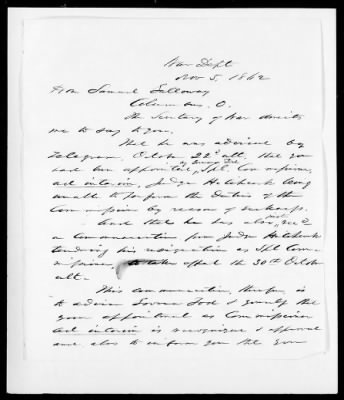 War Dept
Nov 5, 1862
Hon Samuel Galloway
Columbus, O.
The Secretary of War directs
me to say to you,
That he was advised by
telegram, October 22d ult. that you
had been appointed by Governor Tod Spl. Commissioner
ad interim, Judge Hitchcock being
unable to perform the duties of the
Commission by reason of
And that he has also just rec'd
a communication from Judge Hitchcock
tendering his resignation as Spl Com-
missioner, to take effect the 30th October
ult.
This communication, therefore, is
to advise Govnor Tod & yourself that
your appointment as Commissioner
ad interim is recognized & approved
and also to inform you that your